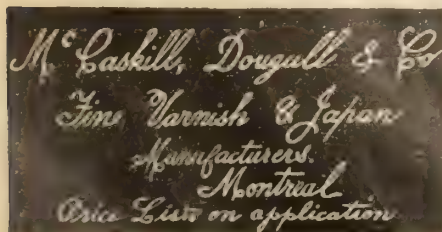 Mc Caskill, Dougall & Co
Fine Varnish & Japan
Manufacturers.
Montreal
Price List on application